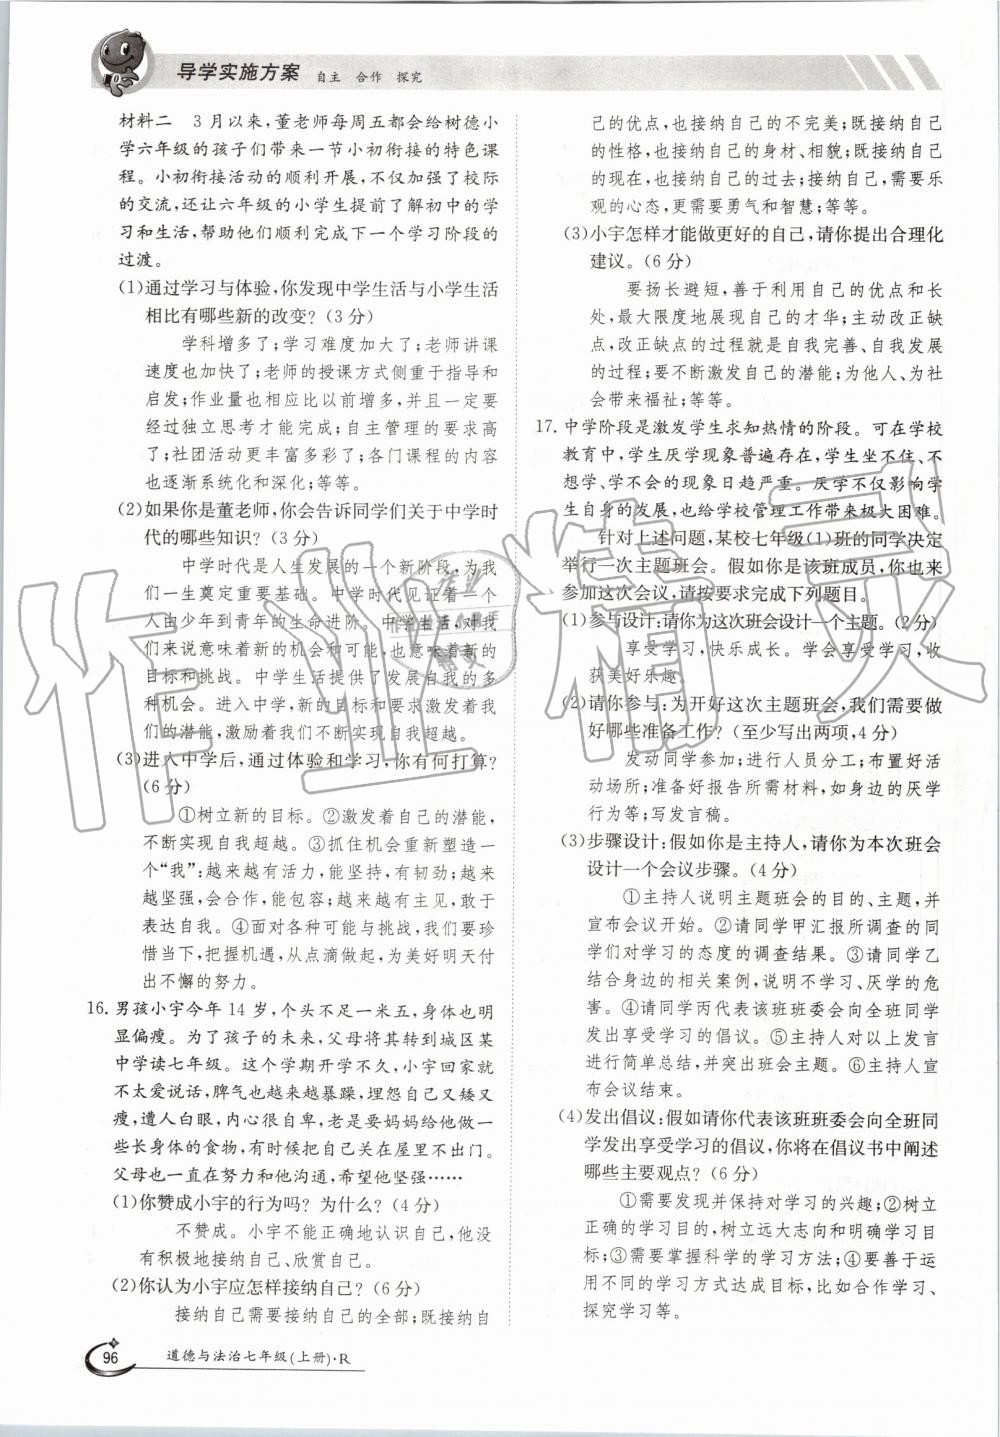 导学实施方案 自主 合作 探究
材料二 3月以来,董老师每周五都会给树德小
学六年级的孩子们带来一节小初衔接的特色课
程。小初衔接活动的顺利开展,不仅加强了校际
的交流,还让六年级的小学生提前了解初中的学
习和生活,帮助他们顺利完成下一个学习阶段的
过渡。
(1)通过学习与体验,你发现中学生活与小学生活
相比有哪些新的改变?(3分)
学科增多了;学习难度加大了;老师讲课
速度也加快了;老师的授课方式侧重于指导和
启发;作业量也相应比以前增多,并且一定要
经过独立思考才能完成;自主管理的要求高
了;社团活动更丰富多彩了;各门课程的内容
也逐渐系统化和深化;等等。
(2)如果你是董老师,你会告诉同学们关于中学时
代的哪些知识?(3分)
中学时代是人生发展的一个新阶段,为我
们一生奠定重要基础。中学时代见证着一个
人由少年到青年的生命进阶。中学生活,对我
们来说意味着新的机会和可能,也意味着新的
目标和挑战。中学生活提供了发展自我的多
种机会。进入中学,新的目标和要求激发着我
们的潜能,激励着我们不断实现自我超越。
(3)进入中学后,通过体验和学习,你有何打算?
(6分)
①树立新的目标。②激发着自己的潜能,
不断实现自我超越。③抓住机会重新塑造一
个“我”:越来越有活力,能坚持,有韧劲;越来
越坚强,会合作,能包容;越来越有主见,敢于
表达自我。④面对各种可能与挑战,我们要珍
惜当下,把握机遇,从点滴做起,为美好明天付
出不懈的努力。
16. 男孩小宇今年14岁,个头不足一米五,身体也明
显偏瘦。为了孩子的未来,父母将其转到城区某
中学读七年级。这个学期开学不久,小宇回家就
不太爱说话,脾气也越来越暴躁,埋怨自己又矮又
瘦,遭人白眼,内心很自卑,老是要妈妈给他做一
些长身体的食物,有时候把自己关在屋里不出门。
父母也一直在努力和他沟通,希望他坚强……
(1)你赞成小宇的行为吗?为什么?(4分)
不赞成。小宇不能正确地认识自己,他没
有积极地接纳自己、欣赏自己。
(2)你认为小宇应怎样接纳自己?(6分)
接纳自己需要接纳自己的全部;既接纳自
己的优点,也接纳自己的不完美;既接纳自己
的性格,也接纳自己的身材、相貌;既接纳自己
的现在,也接纳自己的过去;接纳自己,需要乐
观的心态,更需要勇气和智慧;等等。
(3)小宇怎样才能做更好的自己,请你提出合理化
建议。(6分)
要扬长避短,善于利用自己的优点和长
处,最大限度地展现自己的才华;主动改正缺
点,改正缺点的过程就是自我完善、自我发展
的过程;要不断激发自己的潜能;为他人、为社
会带来福祉;等等。
17. 中学阶段是激发学生求知热情的阶段。可在学校
教育中,学生厌学现象普遍存在,学生坐不住、不
想学、学不会的现象日趋严重。厌学不仅影响学
生自身的发展,也给学校管理工作带来极大困难。
针对上述问题,某校七年级(1)班的同学决定
举行一次主题班会。假如你是该班成员,你也来
参加这次会议,请按要求完成下列题目。
(1)参与设计:请你为这次班会设计一个主题。(2分)
享受学习,快乐成长。学会享受学习,收
获美好乐趣。
(2)请你参与:为开好这次主题班会,我们需要做
好哪些准备工作?(至少写出两项,4分)
发动同学参加;进行人员分工;布置好活
动场所;准备好报告所需材料,如身边的厌学
行为等;写发言稿。
(3)步骤设计:假如你是主持人,请你为本次班会
设计一个会议步骤。(4分)
①主持人说明主题班会的目的、主题,并
宣布会议开始。②请同学甲汇报所调查的同
学们对学习的态度的调查结果。③请同学乙
结合身边的相关案例,说明不学习、厌学的危
害。④请同学丙代表该班班委会向全班同学
发出享受学习的倡议。⑤主持人对以上发言
进行简单总结,并突出班会主题。⑥主持人宣
布会议结束。
(4)发出倡议:假如请你代表该班班委会向全班同
学发出享受学习的倡议,你将在倡议书中阐述
哪些主要观点?(6分)
①需要发现并保持对学习的兴趣;②树立
正确的学习目的,树立远大志向和明确学习目
标;③需要掌握科学的学习方法;④要善于运
用不同的学习方式达成目标,比如合作学习、
探究学习等。
96 道德与法治七年级(上册)·R
作业精灵